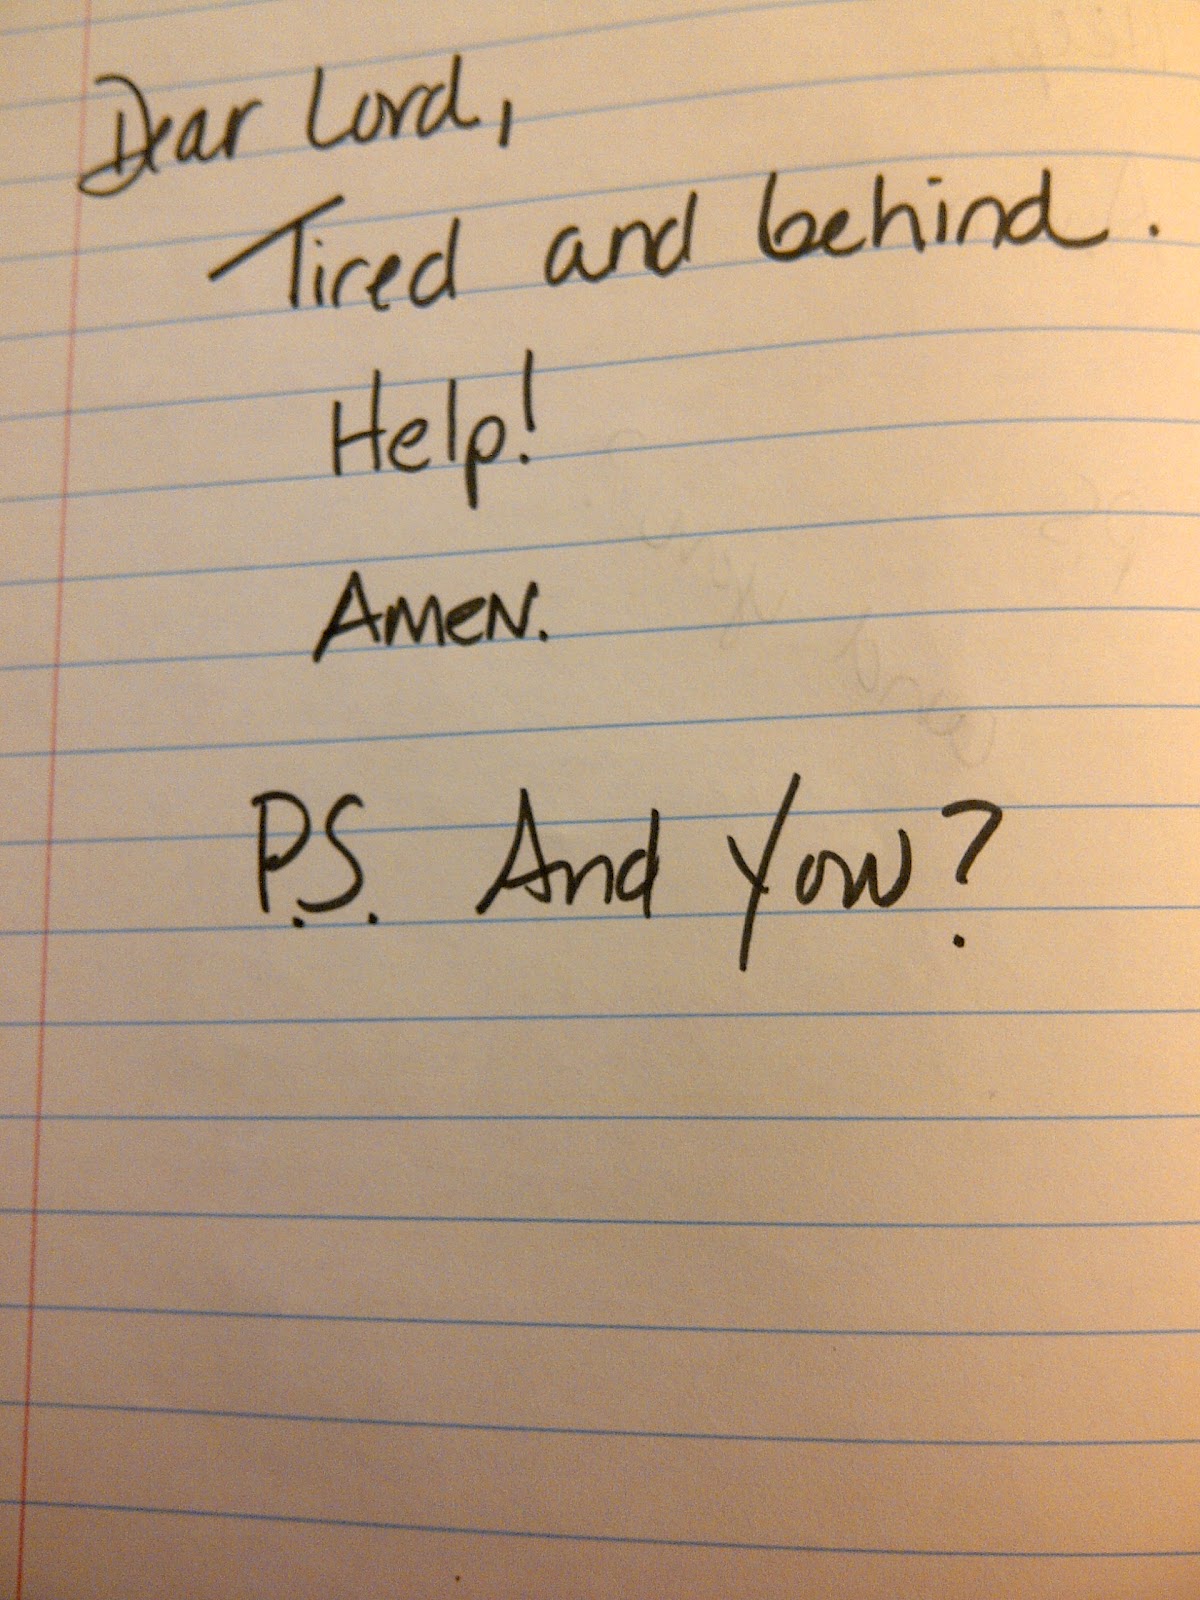 Dear Lord,
Tired and behind.
Help!
Amen.
P.S. And you?